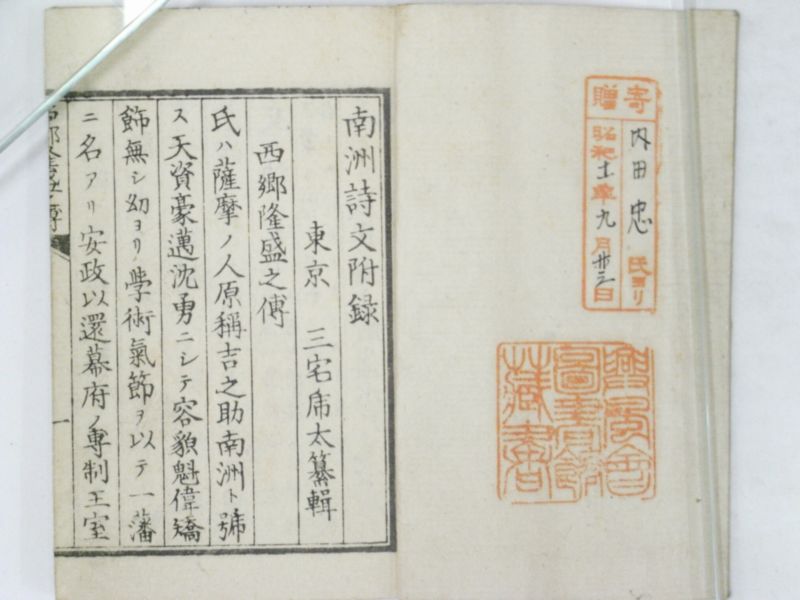 寄贈
内田忠氏ヨリ
昭和十一年九月廿三日
興風會
圖書館
藏書
南洲詩文附録
東京 三宅虎太纂輯
西郷隆盛之傳
氏ハ薩摩ノ人原稱吉之助南洲ト號
ス天資豪邁沈勇ニシテ容貌魁偉矯
飾無シ幼ヨリ學術氣節ヲ以テ一藩
ニ名アリ安政以還幕府ノ專制王室
一